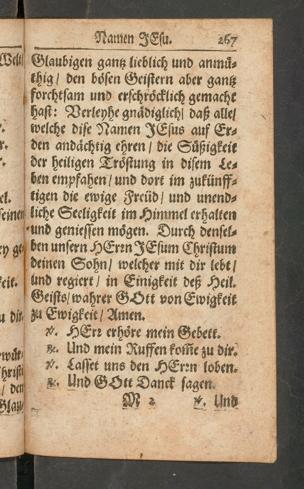 Namen JEsu. 267
Glaubigen gantz lieblich und anmü-
thig / den bösen Geistern aber gantz
forchtsam und erschröcklich gemacht
hast: Verleyhe gnädiglich / daß alle /
welche dise Namen JEsus auf Er-
den andächtig ehren / die Süßigkeit
der heiligen Tröstung in disem Le-
ben empfahen / und dort im zukünff-
tigen die ewige Freüd / und unend-
liche Seeligkeit im Himmel erhalten
und geniessen mögen. Durch densel-
ben unsern HErrn JEsum Christum
deinen Sohn / welcher mit dir lebt /
und regiert / in Einigkeit deß Heil.
Geists / wahrer GOtt von Ewigkeit
zu Ewigkeit / Amen.
℣. HErr erhöre mein Gebett.
℟. Und mein Ruffen kom̃e zu dir.
℣. Lasset uns den HErrn loben.
℟. Und GOtt Danck sagen.
M 2 ℣. Und